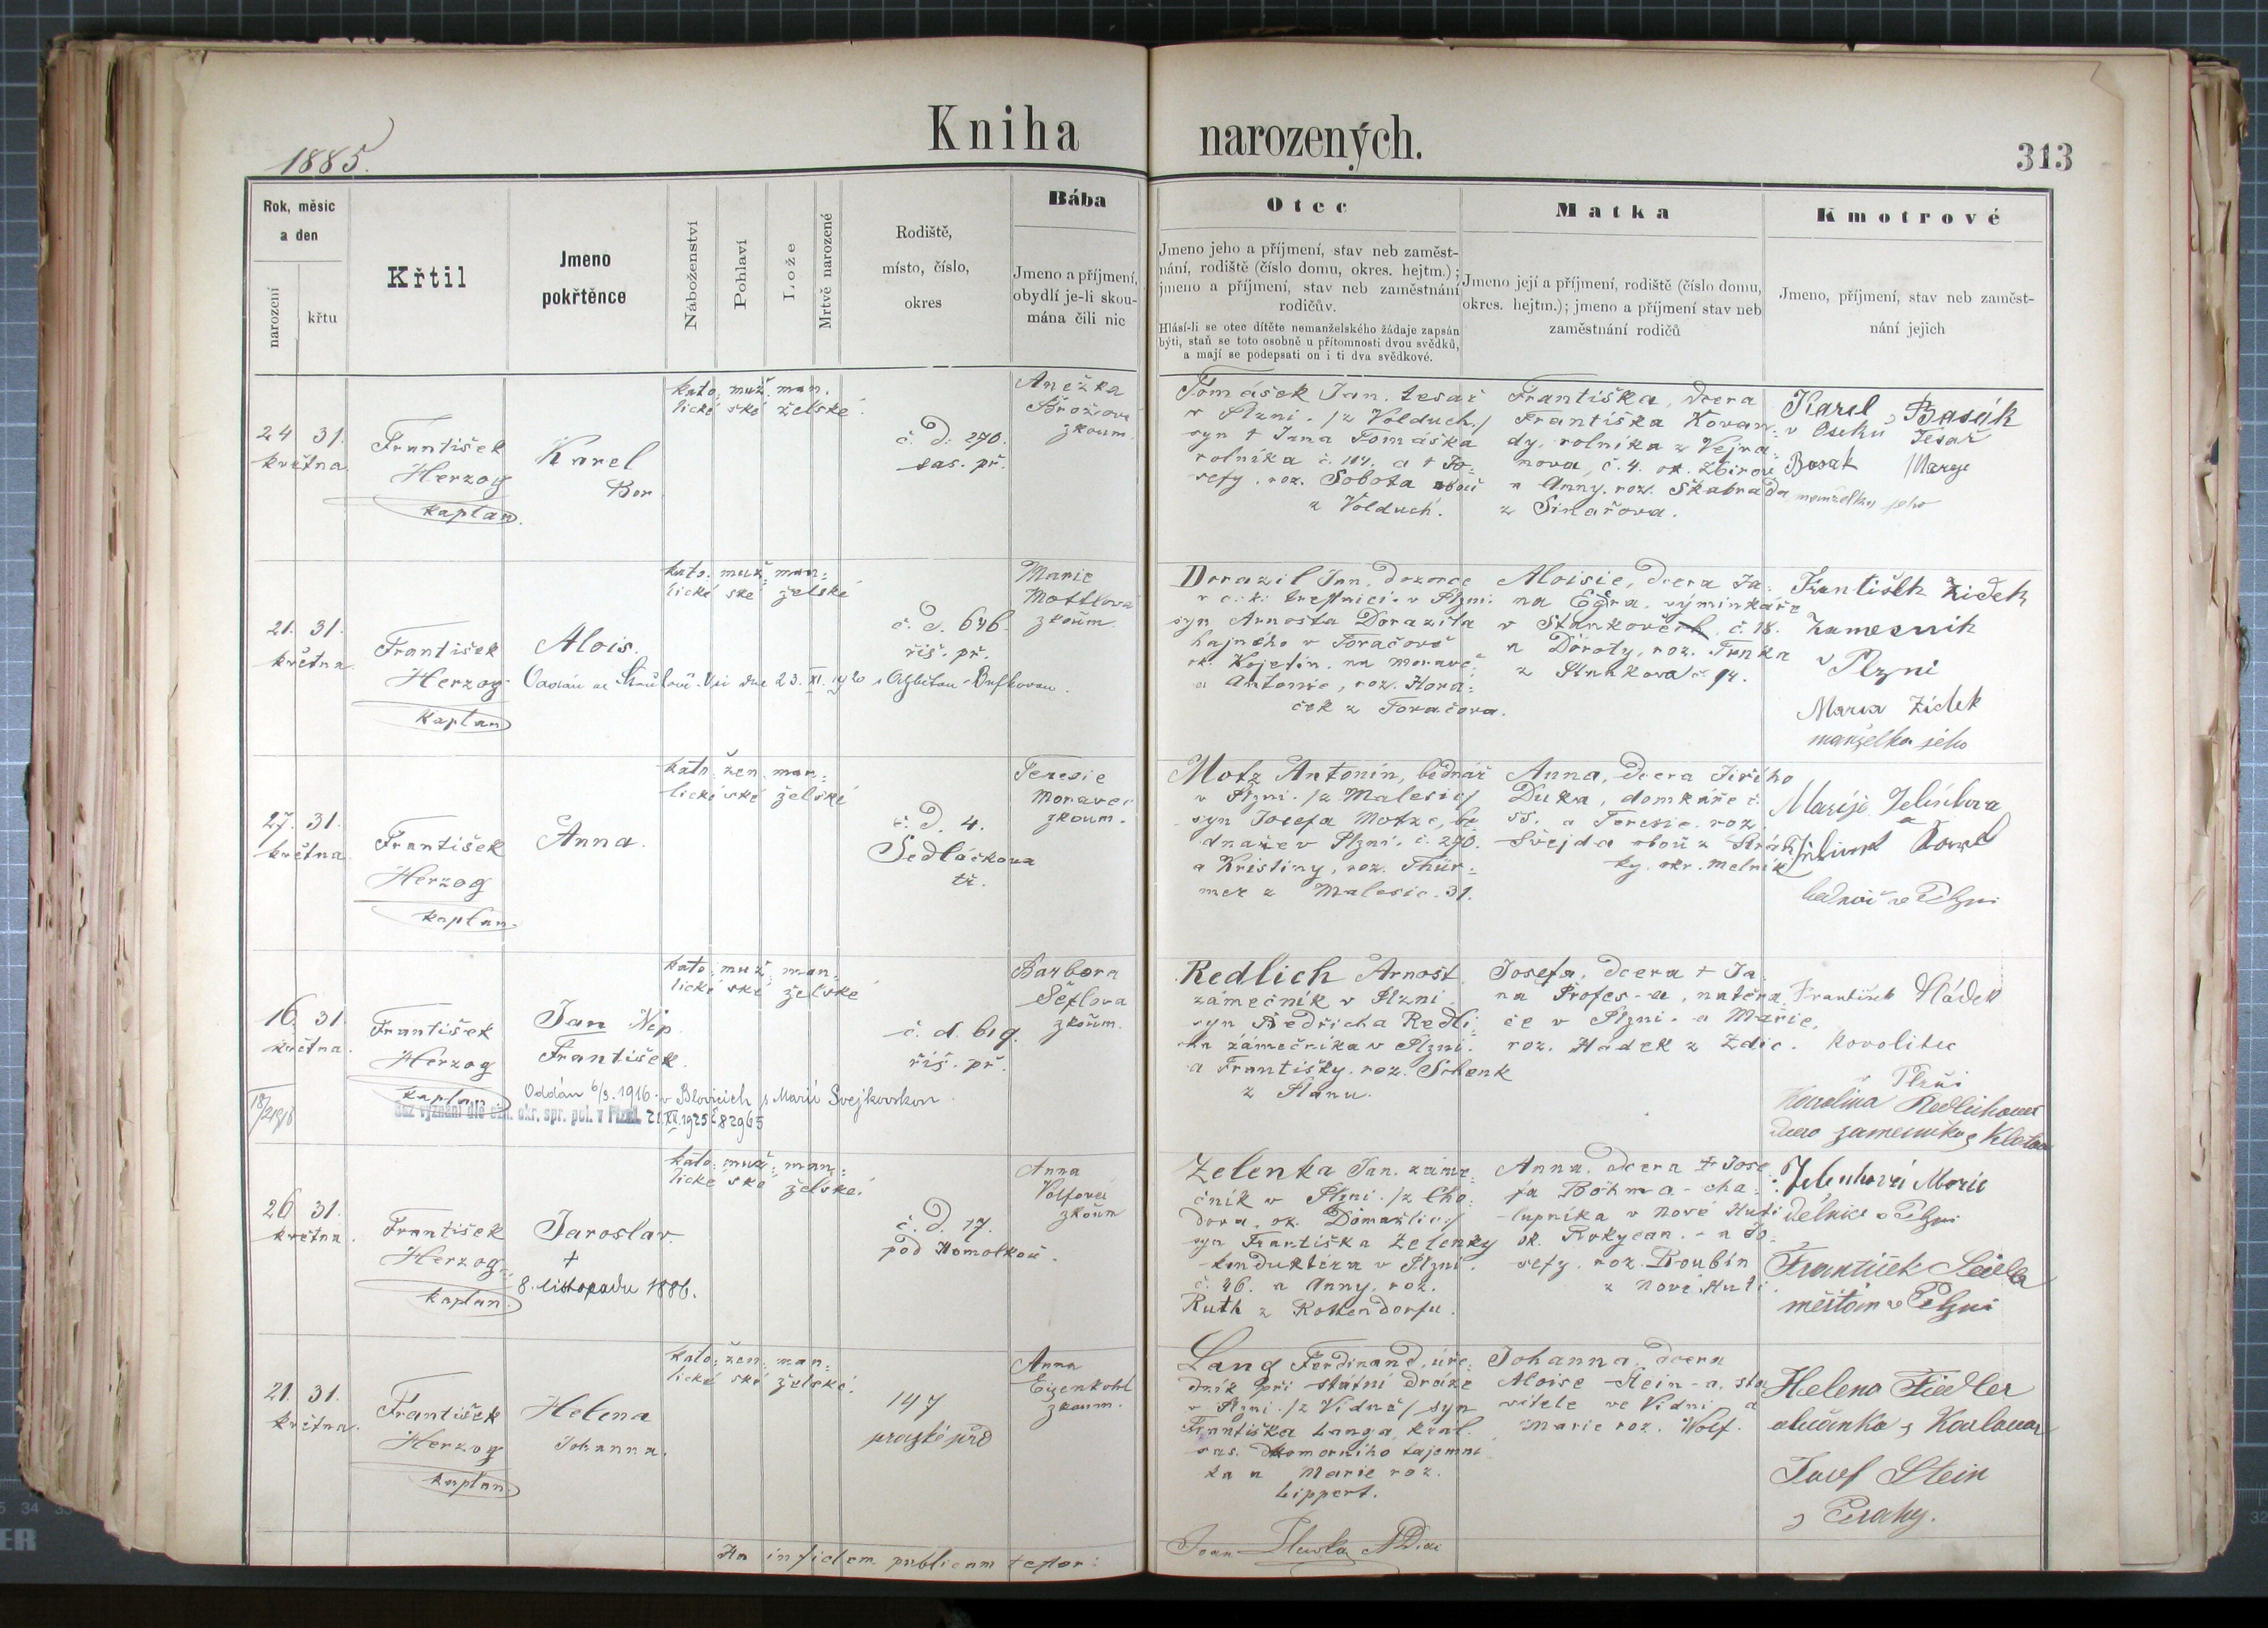 1885.
Kniha narozených.
313
Rok, měsíc a den
narození
křtu
Křtil
Jmeno pokřtěnce
Náboženství
Pohlaví
Lože
Mrtvě narozené
Rodiště,
místo, číslo,
okres
Bába
Jmeno a příjmení,
obydlí je-li skou-
mána čili nic
Otec
Jmeno jeho a příjmení, stav neb zaměst-
nání, rodiště (číslo domu, okres. hejtm.);
jmeno a příjmení, stav neb zaměstnání
rodičův.
Hlásí-li se otec dítěte nemanželského žádaje zapsán
býti, staň se toto osobně u přítomnosti dvou svědků,
a mají se podepsati on i ti dva svědkové.
Matka
Jmeno její a příjmení, rodiště (číslo domu,
okres. hejtm.); jmeno a příjmení stav neb
zaměstnání rodičů
Kmotrové
Jmeno, příjmení, stav neb zaměst-
nání jejich
24 31.
května.
František
Herzog
kaplan.
Karel
Bor
kato: muž: man:
lické ské želské.
č. d. 270.
sas. př.
Anežka
Brožová
zkoum.
Tomášek Jan, tesař
v Plzni. /z Volduch./
syn † Jana Tomáška
rolníka č. 104. a † Jo-
sefy. roz. Sobota obou
z Volduch.
Františka, dcera
Františka Kovan:
dy, rolníka z Vejva:
nova, č. 4. ok. Zbirov
a Anny. roz. Škabrada
z Sinařova.
Karel Basák
v Oseku Tesař
Basak Marye
manželka jeho
21. 31.
května.
František
Herzog
kaplan
Alois.
Oddán ve dne 23. XI. 1920 s
kato: muž: man:
lické ské želské
č. d. 646.
říš. př.
Marie
Mottlová
zkoum.
Dorazil Jan, dozorce
v c. k. trestnici v Plzni.
syn Arnošta Dorazila
hajného v Tovačově
ok. Kojetín. na Moravě.
a Antonie, roz. Horá:
ček z Tovačova.
Aloisie, dcera Ja:
na Egra. výminkáře
v Staňkově č. 18.
a Doroty, roz. Trnka
z Staňkova č. 94.
František Židek
Zamesnik
v Plzni
Maria Židek
manželka jeho
27. 31.
května.
František
Herzog
kaplan.
Anna.
kato: žen: man:
lické ské želské
č. d. 4.
Sedláčkova
tř.
Teresie
Moravec
zkoum.
Motz Antonín, bednář
v Plzni. /z Malesic/
syn Josefa Motze, be
dnáře v Plzni. č. 270.
a Kristiny, roz. Thür:
mer z Malesic. 31.
Anna, dcera Jiřího
Duka, domkáře č.
55. a Teresie. roz.
Švejda obou z Stráž
ky. okr. Mělník
Marije Jelínkova
a
Jelinek Karel
bednář v Plzni
16. 31.
května.
František
Herzog
kaplan
Jan Nep.
František.
Oddán 6/3. 1916. v Blovicích s Marií Švejkovskou
Bez vyznání dle ozn. okr. spr. pol. v Plzni 21.XII.1925 č 82965
kato: muž: man:
lické ské želské
č. d. 619.
říš. př.
Barbora
Šéflova
zkoum.
Redlich Arnošt
zámečník v Plzni
syn Bedřicha Redli:
cha zámečníka v Plzni.
a Františky. roz. Schenk
z Plánu.
Josefa, dcera † Ja
na Profes-a, natěra
če v Plzni. a Marie,
roz. Hádek z Zdic.
František Hádek
Kovolitec
Plzni
Karolina Redlichova
dcera zamečnika z Klatov
26 31.
května.
František
Herzog
kaplan.
Jaroslav.
†
8. listopadu 1886.
kato: muž: man:
lické ské želské.
č. d. 17.
pod Homolkou.
Anna
Volfová
zkoum
Zelenka Jan, záme:
čník v Plzni. /z Cho:
dova, ok. Domažlic./
syn Františka Zelenky
konduktéra v Plzni.
č. 46. a Anny, roz.
Ruth z Rottendorfu.
Anna, dcera † Jose
fa Böhma-cha:
lupníka v Nové Huti
ok. Rokycan. a Jo:
sefy, roz. Roubín
z Nové Huti.
Jelenková Marie
dělnice v Plzni
František Seidl
měšťan v Plzni
21. 31.
května.
František
Herzog
kaplan
Helena
Johanna.
kato: žen: man:
lické ské želské.
147
pražské před
Anna
Eizenkohl
zkoum.
Lang Ferdinand, úře:
dník při státní dráze
v Plzni. /z Vídně/ syn
Františka Langa, král.
sas. komorního tajemní
ka a Marie roz.
Lippert.
Johanna, dcera
Aloise Stein-a, sta
vitele ve Vídni a
Marie roz. Wolf.
Helena Fiedler
občanka z Karlovar
Josef Stein
z Prahy.
In fidem publicam testor: